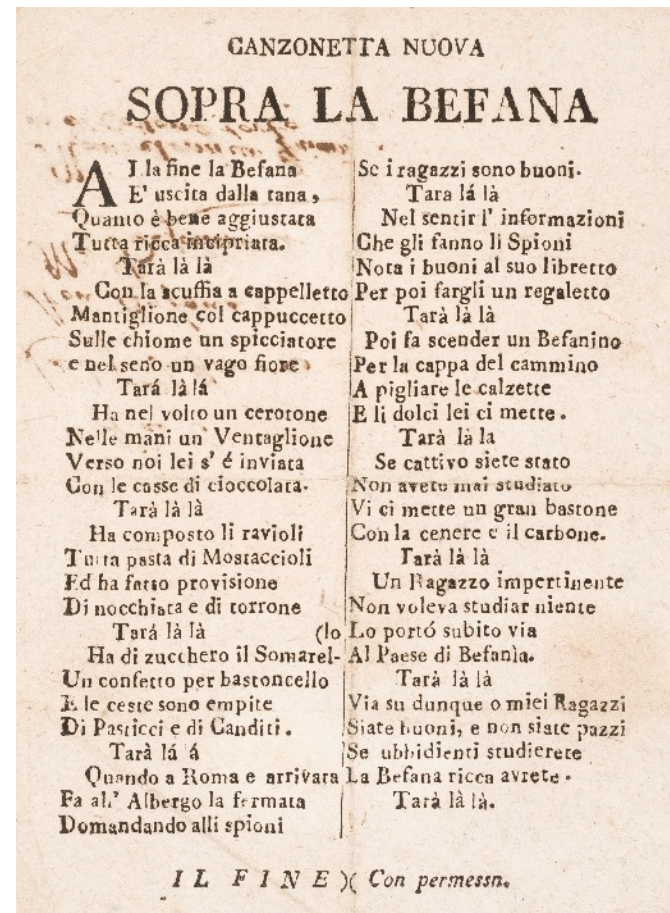 CANZONETTA NUOVA
SOPRA LA BEFANA
A I la fine la Befana
E' uscita dalla tana,
Quanto è bene aggiustata
Tutta ricca incipriata.
Tarà là là
Con la scuffia a cappelletto
Mantiglione col cappuccetto
Sulle chiome un spicciatore
e nel seno un vago fiore
Tará là lá
Ha nel volto un cerotone
Nelle mani un Ventaglione
Verso noi lei s' é inviata
Con le casse di cioccolata.
Tarà là là
Ha composto li ravioli
Tutta pasta di Mostaccioli
Ed ha fatto provisione
Di nocchiata e di torrone
Tará là là (lo
Ha di zucchero il Somarel-
Un confetto per bastoncello
E le ceste sono empite
Di Pasticci e di Canditi.
Tarà lá á
Quando a Roma e arrivata
Fa all' Albergo la fermata
Domandando alli spioni
Se i ragazzi sono buoni.
Tara lá là
Nel sentir l' informazioni
Che gli fanno li Spioni
Nota i buoni al suo libretto
Per poi fargli un regaletto
Tarà là là
Poi fa scender un Befanino
Per la cappa del cammino
A pigliare le calzette
E li dolci lei ci mette.
Tarà là la
Se cattivo siete stato
Non avete mai studiato
Vi ci mette un gran bastone
Con la cenere e il carbone.
Tarà là là
Un Ragazzo impertinente
Non voleva studiar niente
Lo portó subito via
Al Paese di Befanìa.
Tarà là là
Via su dunque o miei Ragazzi
Siate buoni, e non siate pazzi
Se ubbidienti studierete
La Befana ricca avrete.
Tarà là là.
IL FINE )( Con permessn.